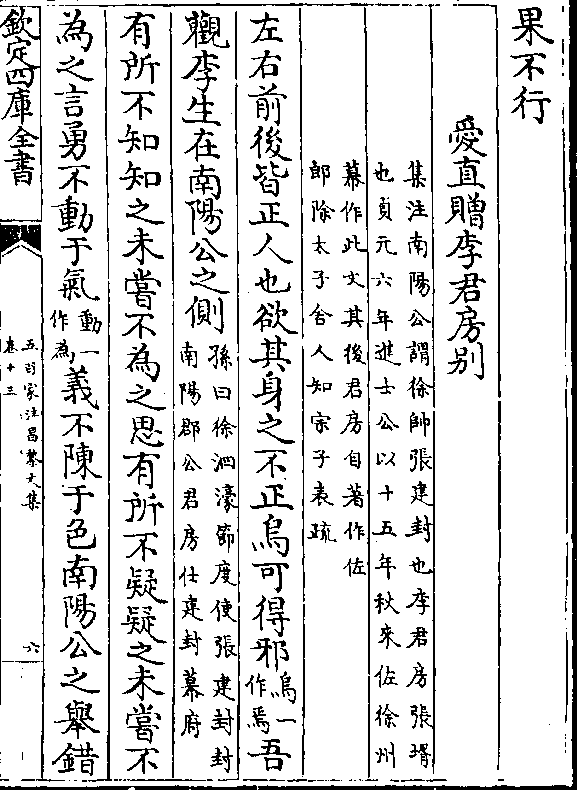 果不行
愛直贈李君房别
集注南陽公謂徐帥張建封也李君房張壻
也貞元六年進士公以十五年秋来佐徐州
幕作此文其後君房自著作佐
郎除太子舍人知宗子表疏
左右前後皆正人也欲其身之不正烏可得邪
烏一
作焉
吾
觀李生在南陽公之側
孫曰徐泗濠節度使張建封封
南陽郡公君房仕建封幕府
有所不知知之未嘗不為之思有所不疑疑之未嘗不
為之言勇不動于氣
動一
作為
義不陳于色南陽公之舉錯
欽定四庫全書
五百家注昌黎文集
卷十三
六